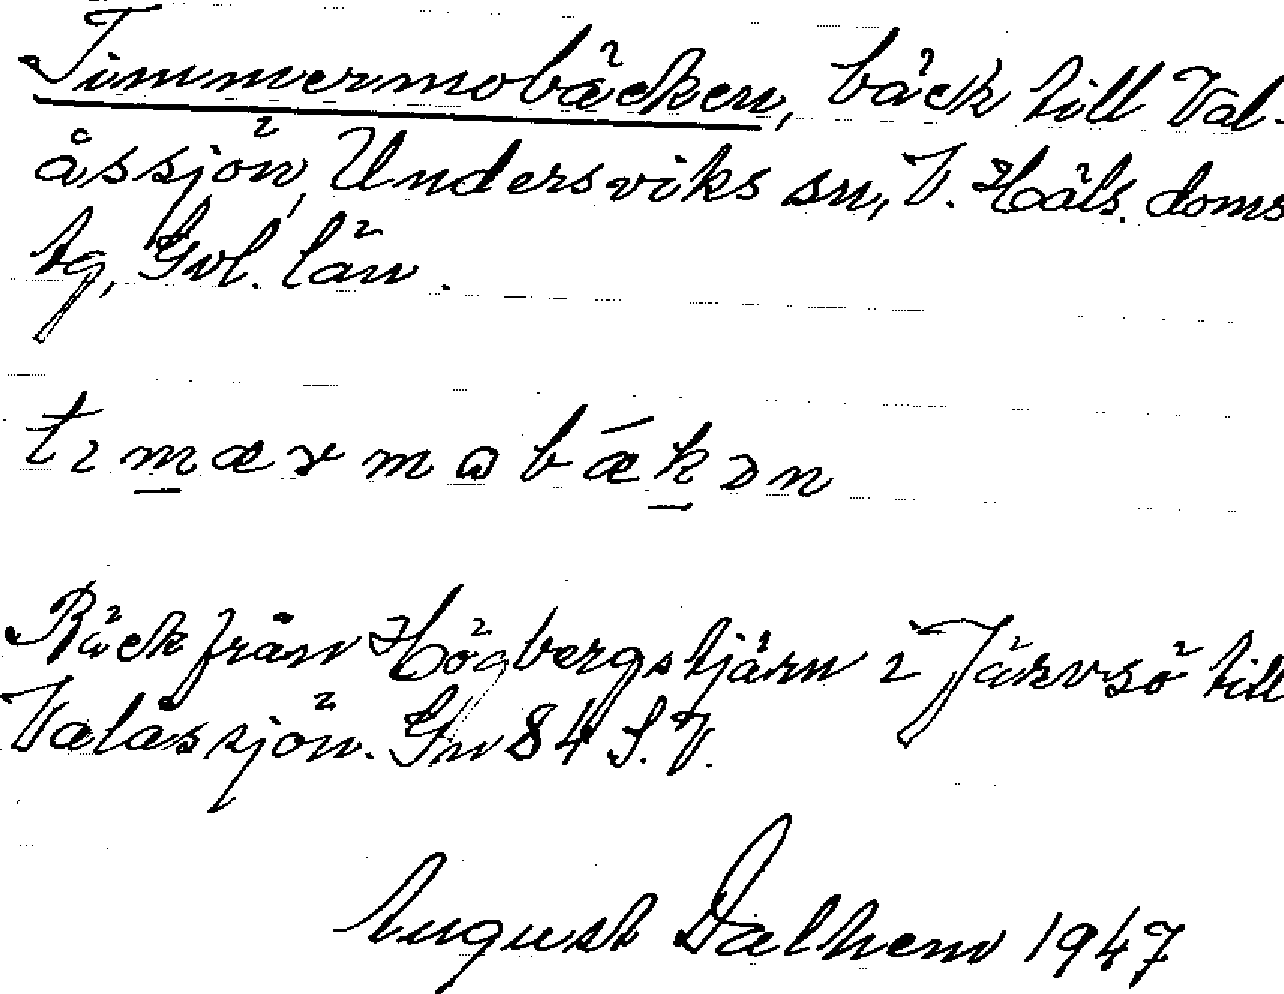 Timmermobäcken, bäck till Val-
åssjön, Undersviks sn, V. Häls. doms
tg, Gvl. län.
tımærmɷbǽkən
Bäck från Högbergstjärn i Järvsö till
Valåssjön. Gn 84 S.V.
August Dalhem 1947